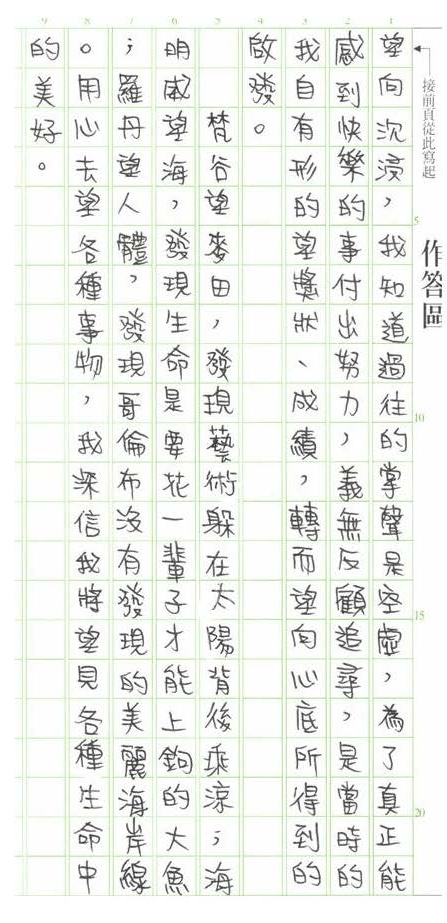 作答區
接前頁從此寫起
1
2
3
4
5
6
7
8
9
5
10
15
20
望向沉浸，我知道過往的掌聲是空虛，為了真正能
感到快樂的事付出努力，義無反顧追尋，是當時的
我自有形的望獎狀、成績，轉而望向心底所得到的
啟發。
梵谷望麥田，發現藝術躲在太陽背後乘涼；海
明威望海，發現生命是要花一輩子才能上鉤的大魚
；羅丹望人體，發現哥倫布沒有發現的美麗海岸線
。用心去望各種事物，我深信我將望見各種生命中
的美好。